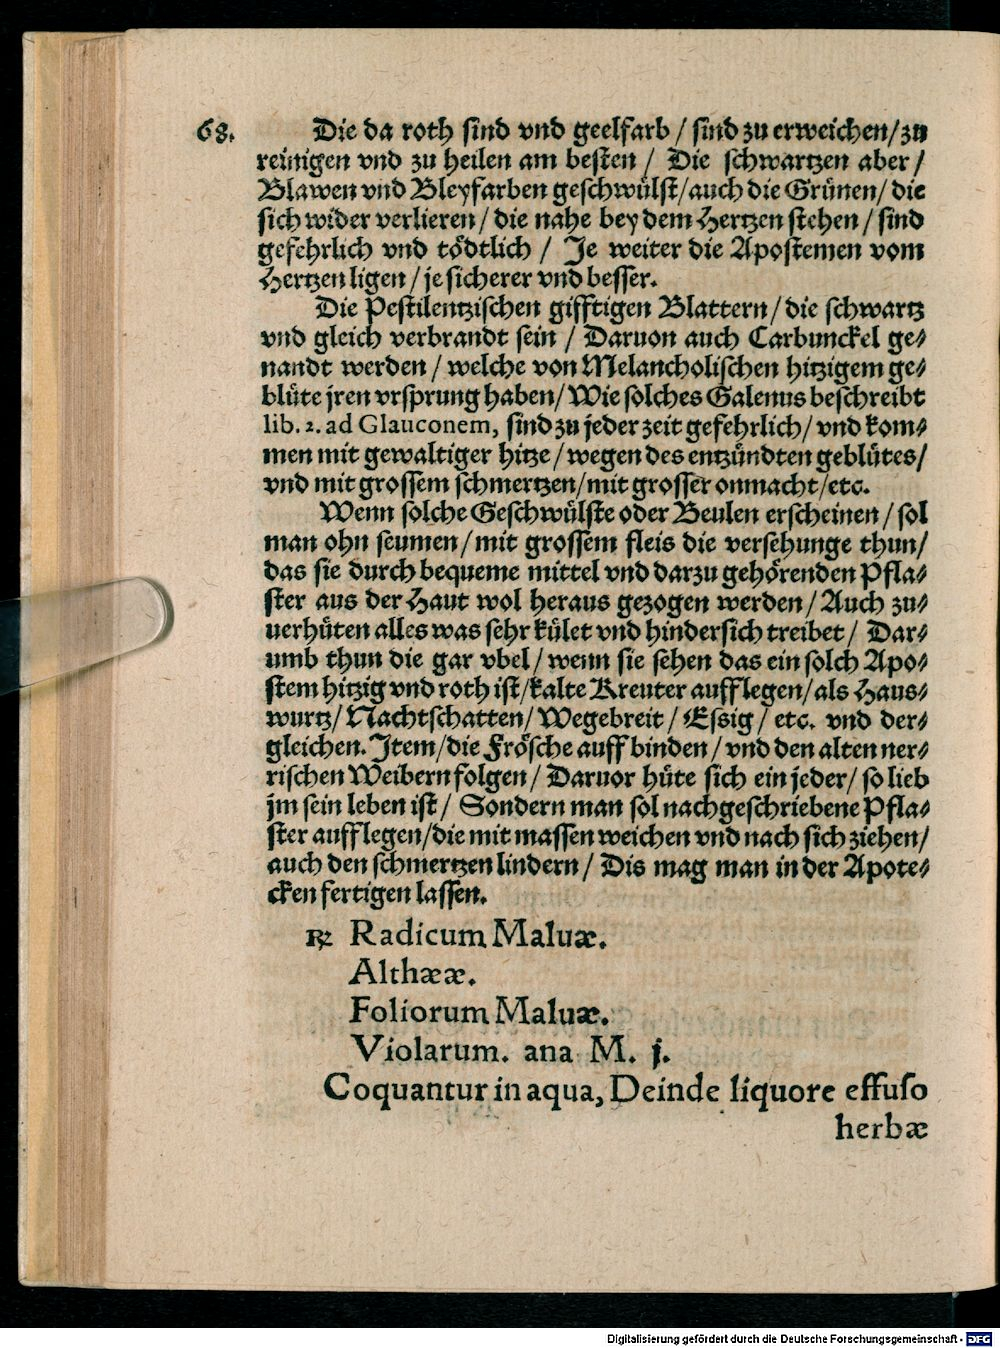 68.
Die da roth sind vnd geelfarb / sind zu erweichen / zu
reinigen vnd zu heilen am besten / Die schwartzen aber /
Blawen vnd Bleyfarben geschwülst / auch die Grünen / die
sich wider verlieren / die nahe bey dem Hertzen stehen / sind
gefehrlich vnd tödtlich / Je weiter die Apostemen vom
Hertzen ligen / je sicherer vnd besser.
Die Pestilentzischen gifftigen Blattern / die schwartz
vnd gleich verbrandt sein / Daruon auch Carbunckel ge⸗
nandt werden / welche von Melancholischen hitzigem ge⸗
blüte jren vrsprung haben / Wie solches Galenus beschreibt
lib. 2. ad Glauconem, sind zu jeder zeit gefehrlich / vnd kom⸗
men mit gewaltiger hitze / wegen des entzündten geblütes /
vnd mit grossem schmertzen / mit grosser onmacht / etc.
Wenn solche Geschwülste oder Beulen erscheinen / sol
man ohn seumen / mit grossem fleis die versehunge thun /
das sie durch bequeme mittel vnd darzu gehörenden Pfla⸗
ster aus der Haut wol heraus gezogen werden / Auch zu⸗
uerhüten alles was sehr kület vnd hindersich treibet / Dar⸗
umb thun die gar vbel / wenn sie sehen das ein solch Apo⸗
stem hitzig vnd roth ist / kalte Kreuter aufflegen / als Haus⸗
wurtz / Nachtschatten / Wegebreit / Essig / etc. vnd der⸗
gleichen. Item / die Frösche auff binden / vnd den alten ner⸗
rischen Weibern folgen / Daruor hüte sich ein jeder / so lieb
jm sein leben ist / Sondern man sol nachgeschriebene Pfla⸗
ster aufflegen / die mit massen weichen vnd nach sich ziehen /
auch den schmertzen lindern / Dis mag man in der Apote⸗
cken fertigen lassen.
℞ Radicum Maluæ.
Althææ.
Foliorum Maluæ.
Violarum. ana M. j.
Coquantur in aqua, Deinde liquore effuso
herbæ
Digitalisierung gefördert durch die Deutsche Forschungsgemeinschaft - DFG